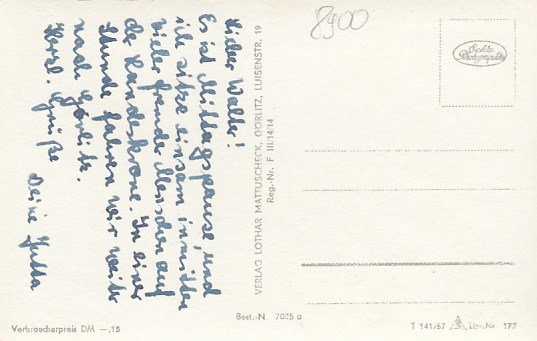 Lieber Walter!
Es ist Mittagspause, und
ich sitze einsam inmitten
vieler fremder Menschen auf
der Landeskrone. In einer
Stunde fahren wir weiter
nach Görlitz.
Herzl. Grüße
Deine Jutta
8900
Echte
Photographie
VERLAG LOTHAR MATTUSCHECK, GÖRLITZ, LUISENSTR. 19
Reg.-Nr. F III/14/14
Verbraucherpreis DM —,15
Best.-N 7035 a
T 141/57 Liz.-Nr. 177